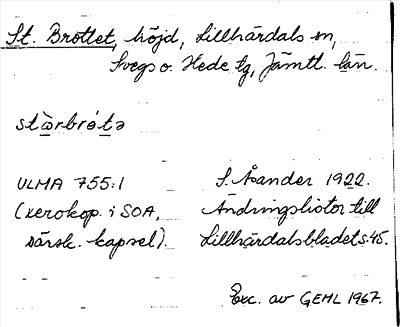 St. Brottet, höjd, Lillhärdals sn,
Svegs o. Hede tg, Jämtl. län.
stàrbrótə
ULMA 755:1 S. Åsander 1922.
(xerokop. i SOA, Ändringslistor till
särsk. kapsel). Lillhärdalsbladet s. 45.
Exc. av GEHL 1967.